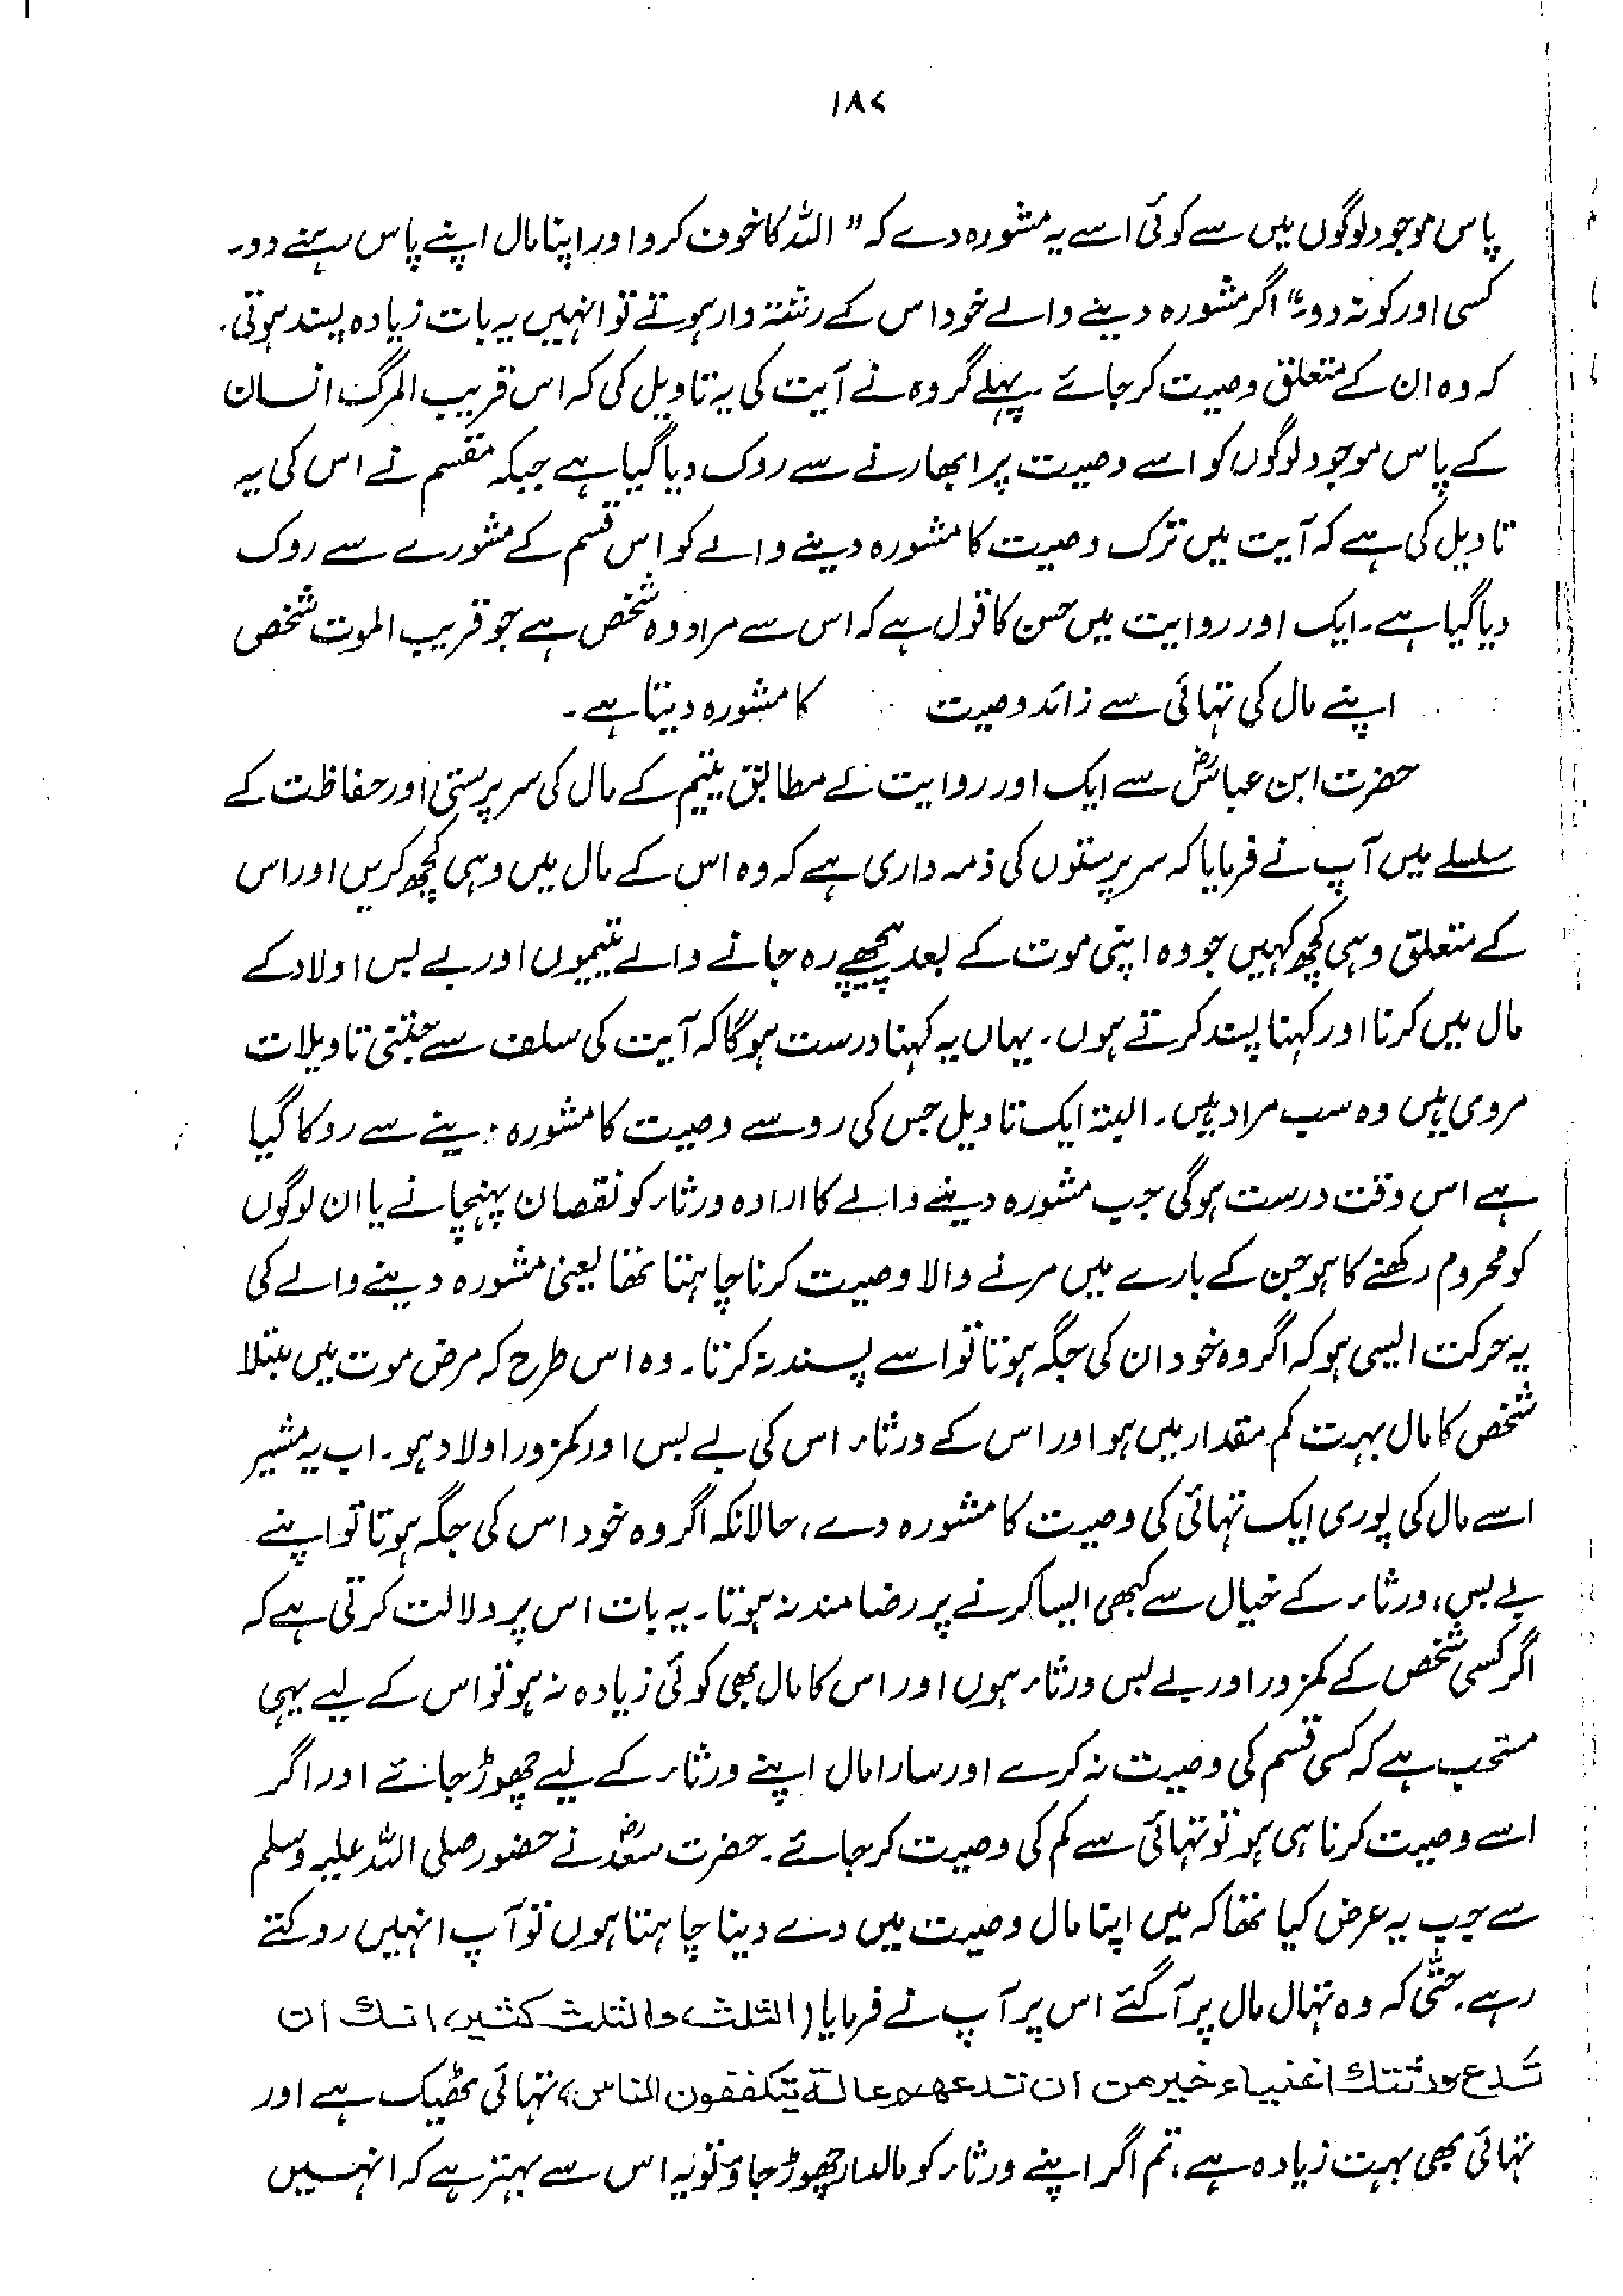 ۱۸۷
پاس موجود لوگوں میں سے کوئی اسے یہ مشورہ دے کہ " اللہ کا خوف کرو اور اپنا مال اپنے پاس رہنے دو۔
کسی اور کو نہ دو۔" اگر مشورہ دینے والے خود اس کے رشتہ دار ہوتے تو انہیں یہ بات زیادہ پسند ہوتی۔
کہ وہ ان کے متعلق وصیت کر جائے ۔ پہلے گروہ نے آیت کی یہ تاویل کی کہ اس قریب المرگ انسان
کے پاس موجود لوگوں کو اسے وصیت پر ابھارنے سے روک دیا گیا ہے جبکہ مقسم نے اس کی یہ
تاویل کی ہے کہ آیت میں ترک وصیت کا مشورہ دینے والے کو اس قسم کے مشورے سے روک
دیا گیا ہے۔ ایک اور روایت میں حسن کا قول ہے کہ اس سے مراد وہ شخص ہے جو قریب الموت شخص
اپنے مال کی تہائی سے زائد وصیت کا مشورہ دیتا ہے۔
حضرت ابن عباسؓ سے ایک اور روایت کے مطابق یتیم کے مال کی سرپرستی اور حفاظت کے
سلسلے میں آپ نے فرمایا کہ سرپرستوں کی ذمہ داری ہے کہ وہ اس کے مال میں وہی کچھ کریں اور اس
کے متعلق وہی کچھ کہیں جو وہ اپنی موت کے بعد پیچھے رہ جانے والے یتیموں اور بے بس اولاد کے
مال میں کرنا اور کہنا پسند کرتے ہوں۔ یہاں یہ کہنا درست ہوگا کہ آیت کی سلف سے جتنی تاویلات
مروی ہیں وہ سب مراد ہیں۔ البتہ ایک تاویل جس کی رو سے وصیت کا مشورہ دینے سے روکا گیا
ہے اس وقت درست ہوگی جب مشورہ دینے والے کا ارادہ ورثاء کو نقصان پہنچانے یا ان لوگوں
کو محروم رکھنے کا ہو جن کے بارے میں مرنے والا وصیت کرنا چاہتا تھا یعنی مشورہ دینے والے کی
یہ حرکت ایسی ہو کہ اگر وہ خود ان کی جگہ ہوتا تو اسے پسند نہ کرتا۔ وہ اس طرح کہ مرض موت میں مبتلا
شخص کا مال بہت کم مقدار میں ہو اور اس کے ورثاء اس کی بے بس اور کمزور اولاد ہو۔ اب یہ مشیر
اسے مال کی پوری ایک تہائی کی وصیت کا مشورہ دے، حالانکہ اگر وہ خود اس کی جگہ ہوتا تو اپنے
بے بس، ورثاء کے خیال سے کبھی ایسا کرنے پر رضامند نہ ہوتا۔ یہ بات اس پر دلالت کرتی ہے کہ
اگر کسی شخص کے کمزور اور بے بس ورثاء ہوں اور اس کا مال بھی کوئی زیادہ نہ ہو تو اس کے لیے یہی
مستحب ہے کہ کسی قسم کی وصیت نہ کرے اور سارا مال اپنے ورثاء کے لیے چھوڑ جائے اور اگر
اسے وصیت کرنا ہی ہو تو تہائی سے کم کی وصیت کر جائے۔ حضرت سعدؓ نے حضور صلی اللہ علیہ وسلم
سے جب یہ عرض کیا تھا کہ میں اپنا مال وصیت میں دے دینا چاہتا ہوں تو آپ انہیں روکتے
رہے۔ حتّٰی کہ وہ تہال مال پر آگئے اس پر آپ نے فرمایا (الثلث والثلث کثیر، انک ان
تدع ورثتک اغنیاء خیر من ان تدعھم عالۃ یتکففون الناس، تہائی ٹھیک ہے اور
تہائی بھی بہت زیادہ ہے، تم اگر اپنے ورثاء کو مالدار چھوڑ جاؤ تو یہ اس سے بہتر ہے کہ انہیں